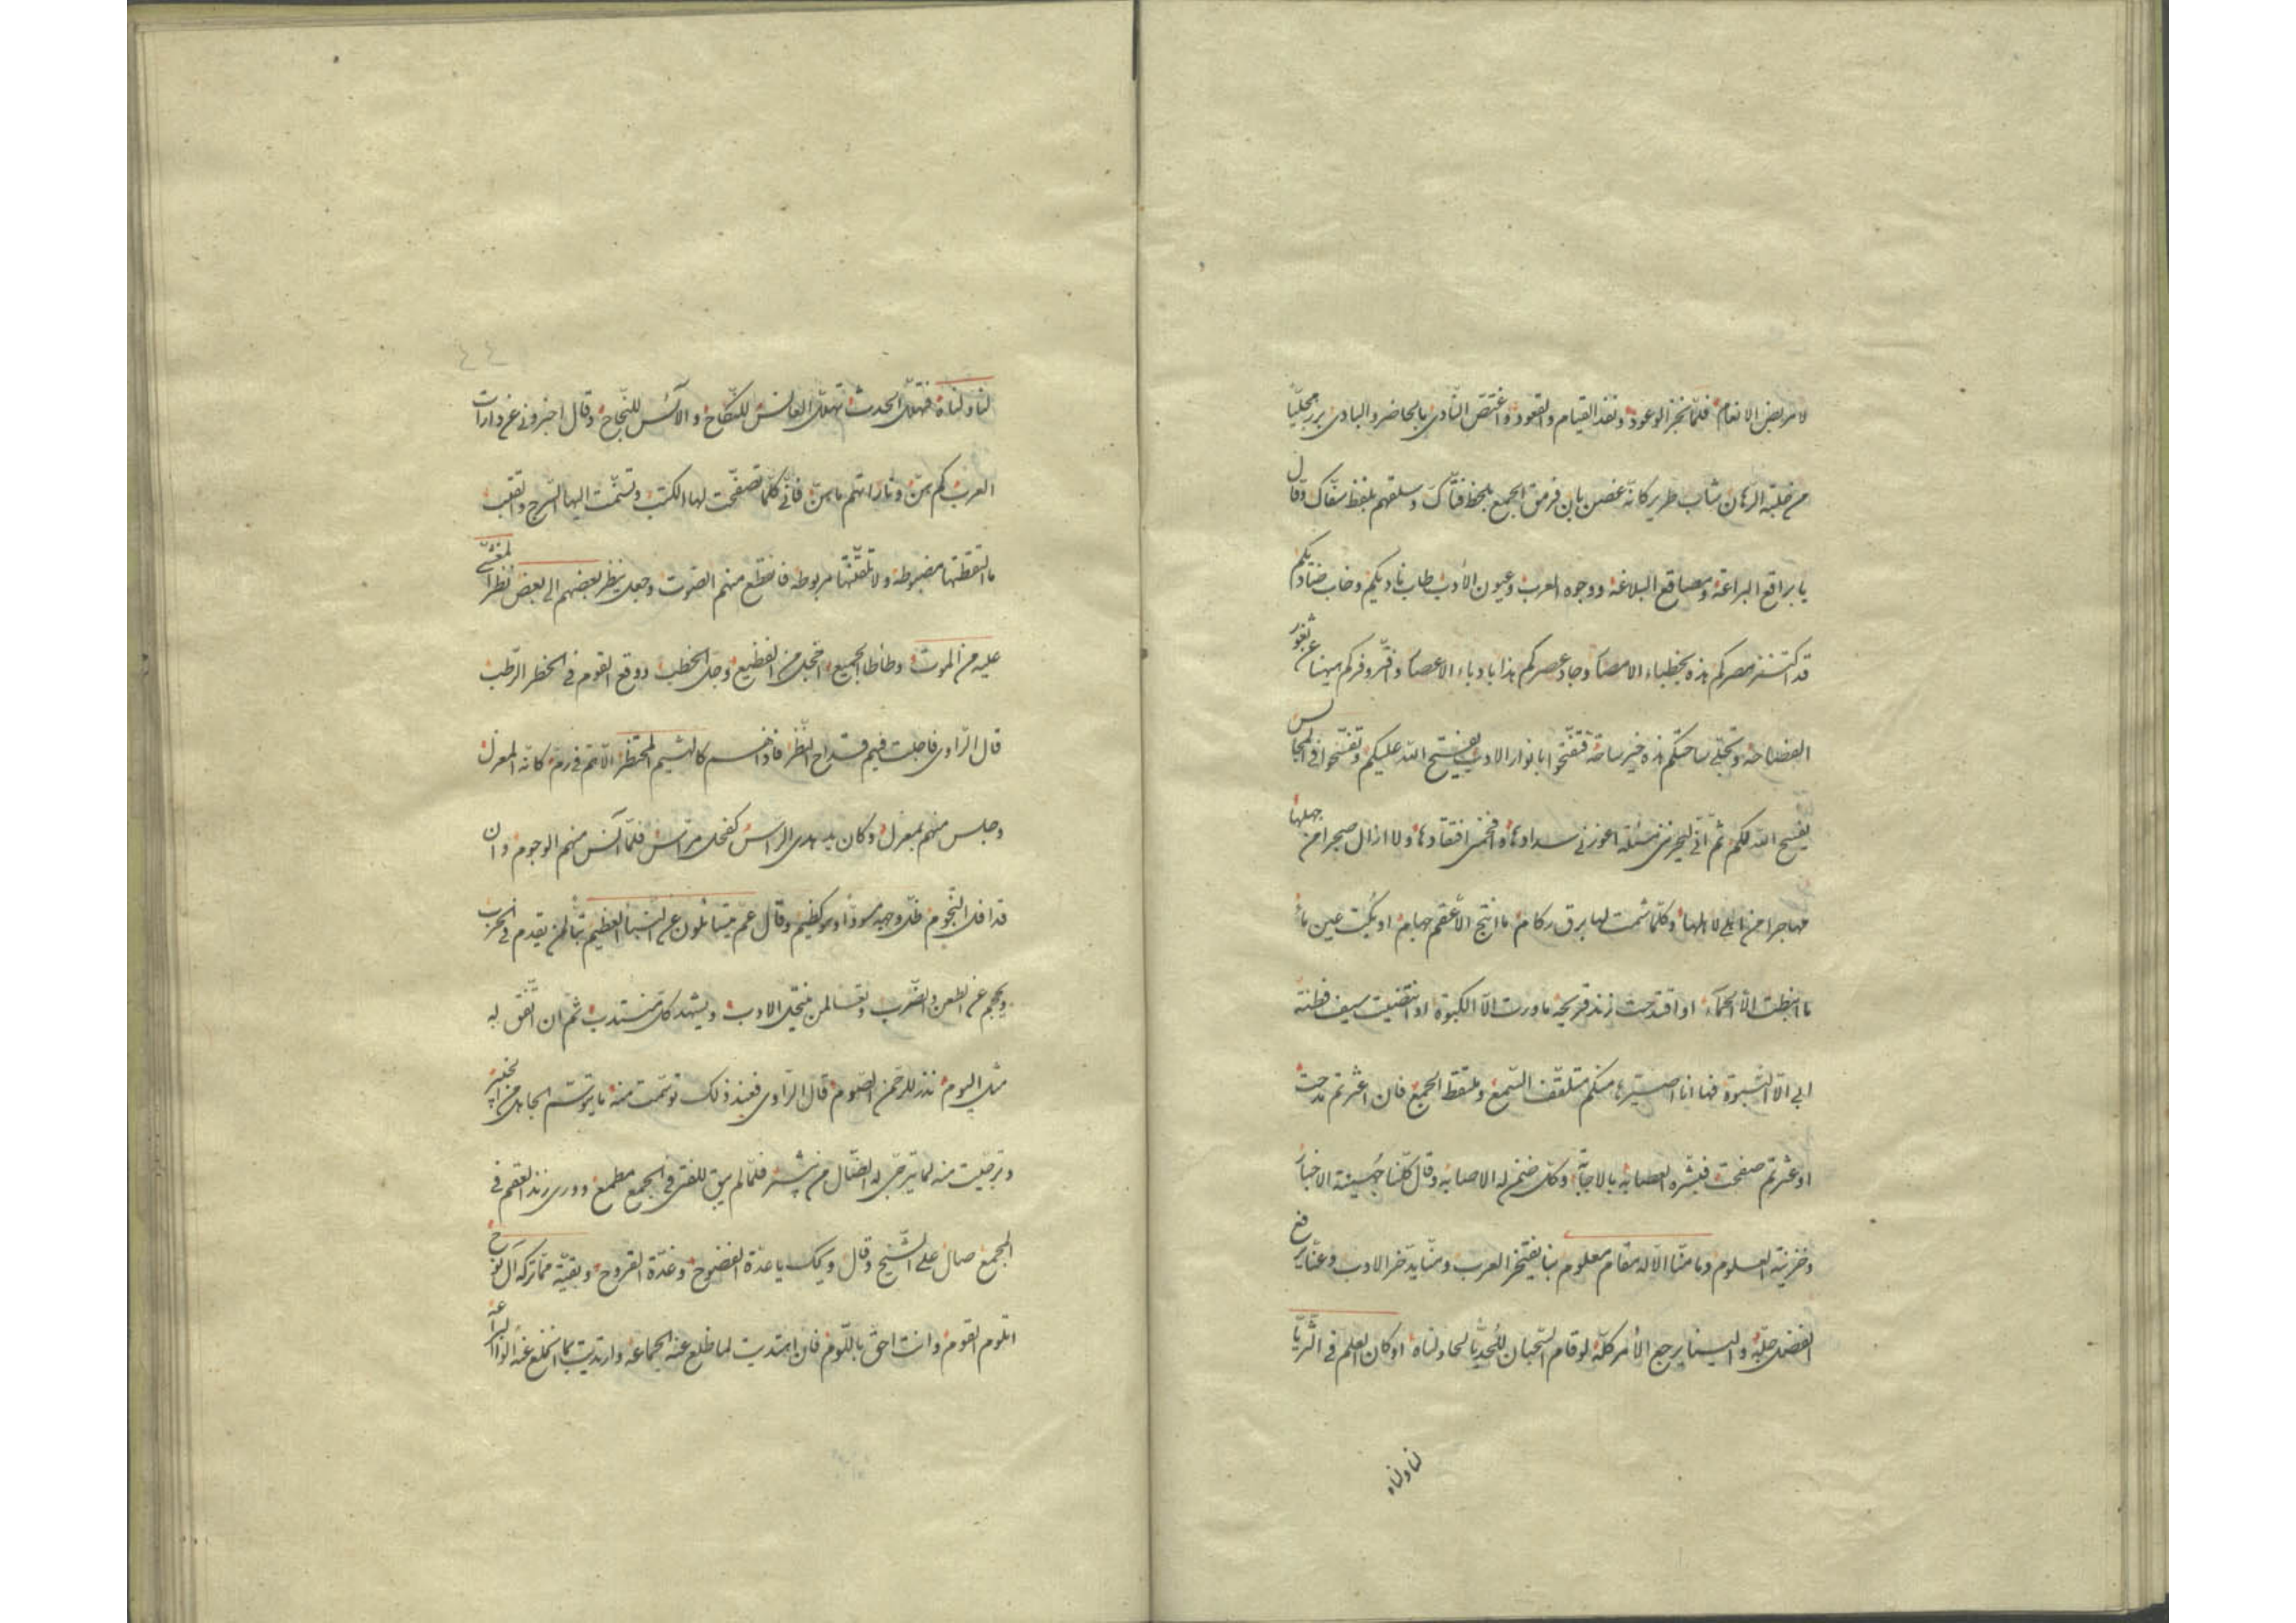 لامر بعض الانعام فلما نجز الوعود ونفد القيام والقعود واغتص النادى بالحاضر والبادى برز مجليا
من حلبة الرهان شاب طرير كانه غصن بان فرمق الجمع بلحظ فتاك وسلقهم بلفظ سفاك وقال
يا براقع البراعة ومصاقع البلاغة ووجوه العرب وعيون الأدب طاب ناديكم وخاب
قد اكتنز مصركم هذه بخطباء الامصار وجاد عصركم هذا بادباء الاعصار وافتر وفركم عن ثغور
الفصاحة وتجلى ساحتكم هذه خير ساحة فتفتحوا بانوار الادب يفتح الله عليكم وتفسحوا فى المجالس
يفسح الله لكم ثم انى مسئلة اعوزنى سدادها افتقادها ولا ازال ضجرا من جهلها
مهاجرا من لاهلها وكلما شمت لها برق ركام ما انتج الا عقم جهام او بكت عين ماء
ما انبطت الا الحمأ او اقتدحت زند قريحة ما ورت الا الكبوة او انتضيت سيف فطنة
ابى الا النبوة فها انا منكم متلقف السمع وملتقط الجمع فان اعثرتم مدحت
او عثرتم صفحت فبشره العصابة بالاجابة وكل ضمن له الاصابه وقال كلنا جهينة الاخبار
وخزينة العلوم وما منا الا له مقام معلوم بنا يفتخر العرب ومنا يدخر الادب وعنا رفع
الفضل جله والينا يرجع الأمر كله لو قام السحبان للتحدى لحاولناه او كان العلم فى الثريا
لناولناه
لناولناه فتهلل الحدث تهلل العانس للنكاح والآئس للنجاح وقال اخبرونى عن دارات
العرب كم هن وناراتهم ما هن فانى كلما تصفحت لها الكتب وتسنمت اليها السرج والقتب
ما التقطتها مضبوطة ولا تلقنتها مربوطة فانقطع منهم الصوت وجعل ينظر بعضهم الى بعض نظر المغشى
عليه من الموت وطأطأ الجميع الفظيع وجل الخطب ووقع القوم فى الحظر الرطب
قال الراوى فاجلت فيهم قداح النظر فاذا هم كالهشيم المحتظر الا هم كانه المغزل
وجلس منهم بمعزل وكان الرأس كفحل فلما آنس منهم الوجوم وان
قد افل النجوم ظل وجهه مسودا وهو كظيم وقال عم يتسائلون عن النبأ العظيم تبا لمن يقدم فى الحرب
ويحجم عن الطعن والضرب وتعسا لمن ينتحل الادب ويشهد كل منتدب ثم ان اتفق له
مثل اليوم نذر للرحمن الصوم قال الراوى فعند ذلك توسمت منه ما يتوسم الجاهل من الخبير
وترجيت منه ما يترجى الضال من فلما لم يبق للفتى فى الجمع مطمع وورى زند العقم فى
المجمع صال على الشيخ وقال ويك يا عدة الفضوح وغدة القروح وبقية مما ترك آل نوح
اتلوم القوم وانت احق باللوم فان اهتديت لما ظلع عنه الجماعة وارتديت بما انخلع عنه